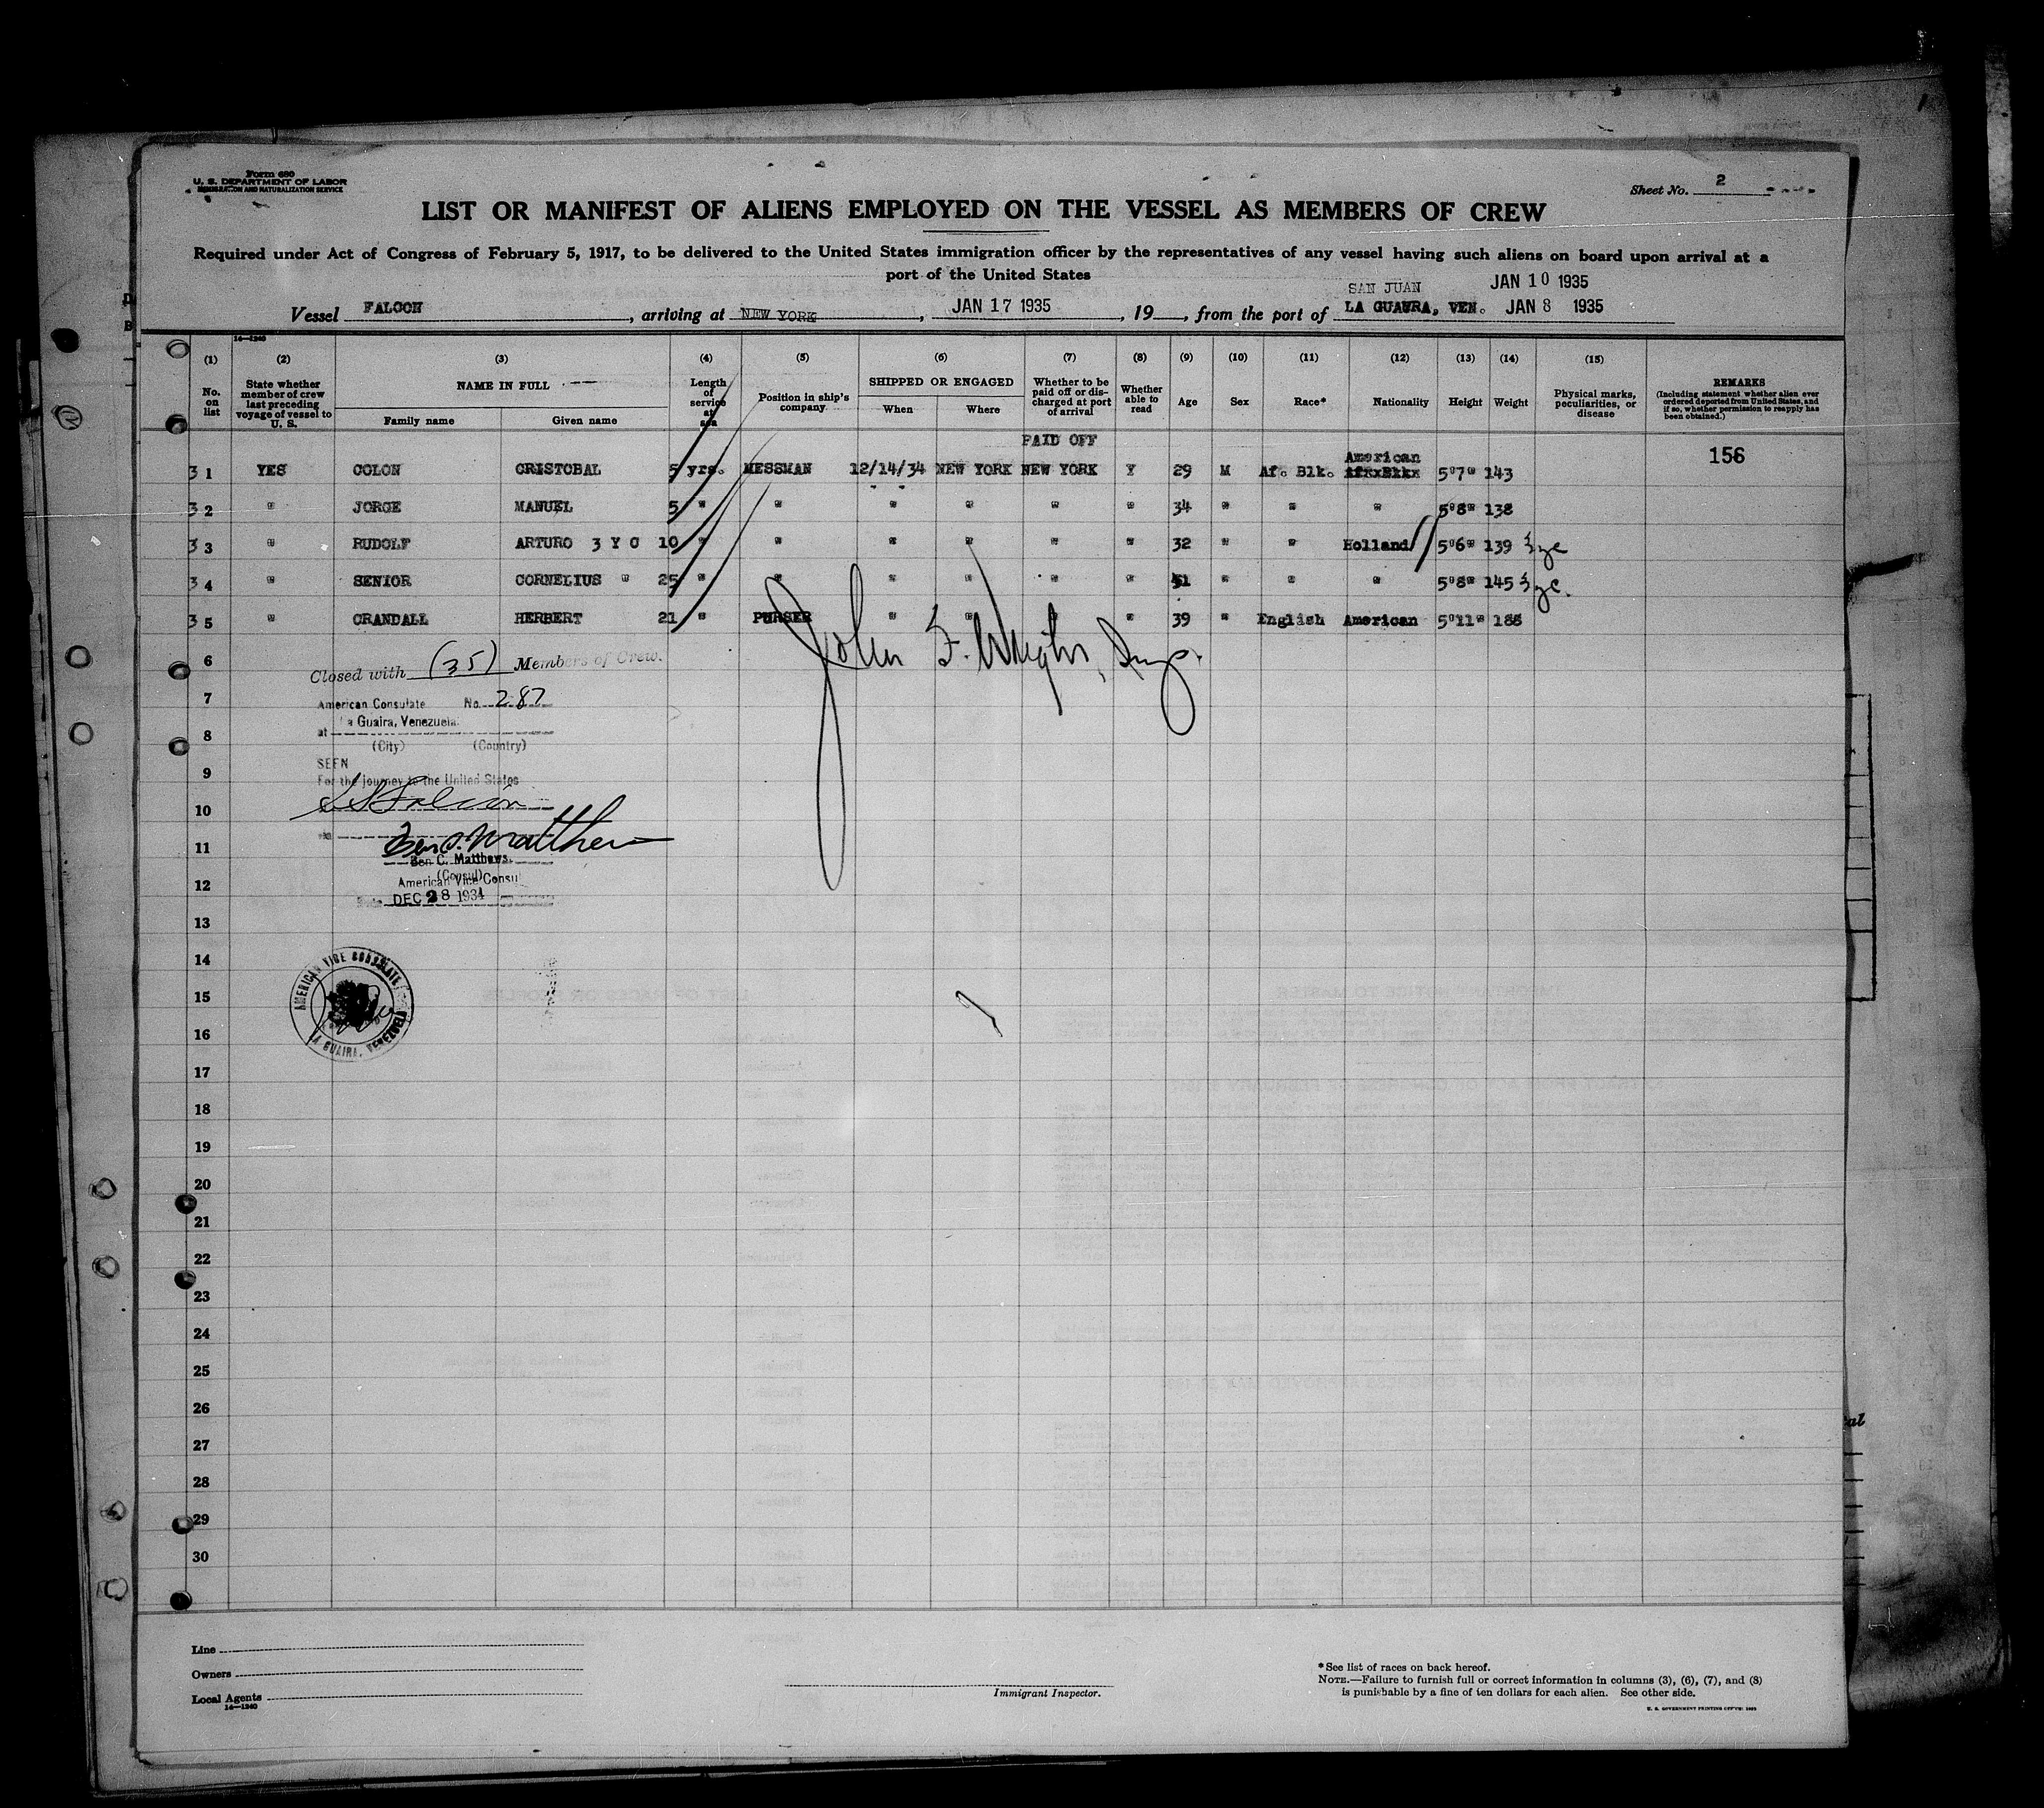 Form 680
U. S. DEPARTMENT OF LABOR
IMMIGRATION AND NATURALIZATION SERVICE
Sheet No. 2
LIST OR MANIFEST OF ALIENS EMPLOYED ON THE VESSEL AS MEMBERS OF CREW
Required under Act of Congress of February 5, 1917, to be delivered to the United States immigration officer by the representatives of any vessel having such aliens on board upon arrival at a
port of the United States
SAN JUAN JAN 10 1935
Vessel FALCON, arriving at NEW YORK, JAN 17 1935, 19, from the port of LA GUAURA, VEN. JAN 8 1935
14—1240
(1) (2) (3) (4) (5) (6) (7) (8) (9) (10) (11) (12) (13) (14) (15)
No. on list
State whether member of crew last preceding voyage of vessel to U. S.
NAME IN FULL
Family name
Given name
Length of service at sea
Position in ship's company
SHIPPED OR ENGAGED
When
Where
Whether to be paid off or discharged at port of arrival
Whether able to read
Age
Sex
Race*
Nationality
Height
Weight
Physical marks, peculiarities, or disease
REMARKS
(Including statement whether alien ever ordered deported from United States, and if so, whether permission to reapply has been obtained.)
PAID OFF
156
American
3 1 YES COLON CRISTOBAL 5 yrs. MESSMAN 12/14/34 NEW YORK NEW YORK Y 29 M Af. Blk. 5'7" 143
3 2 " JORGE MANUEL 5 " " " " " " 34 " " " 5'8" 138
3 3 " RUDOLF ARTURO 3 Y O 10 " " " " " " 32 " " Holland 5'6" 139
3 4 " SENIOR CORNELIUS " 25 " " " " " " 51 " " " 5'8" 145
3 5 " CRANDALL HERBERT 21 " PURSER " " " " 39 " English American 5'11" 188
John F. Wright, Insp.
6
Closed with (35) Members of Crew.
7
American Consulate No. 287
La Guaira, Venezuela.
8
at
(City) (Country)
9
SEEN
For the journey to the United States
10
SS Falcon
11
Ben C. Matthews
Ben C. Matthews.
(Consul)
12
American Vice Consul
Date DEC 28 1934
13
14
AMERICAN VICE CONSULATE
LA GUAIRA, VENEZUELA
15
16
17
18
19
20
21
22
23
24
25
26
27
28
29
30
Line
Owners
Local Agents
14—1240
Immigrant Inspector.
*See list of races on back hereof.
NOTE.—Failure to furnish full or correct information in columns (3), (6), (7), and (8)
is punishable by a fine of ten dollars for each alien. See other side.